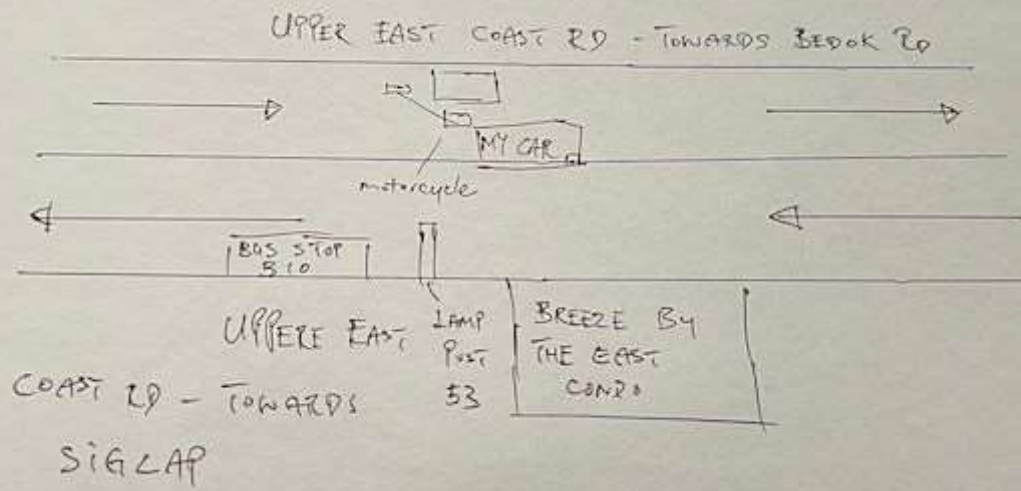 UPPER EAST COAST RD - TOWARDS BEDOK RD
MY CAR
motorcycle
BUS STOP
B10
UPPERE EAST
COAST RD - TOWARDS
SIGLAP
LAMP
POST
53
BREEZE BY
THE EAST
CONDO